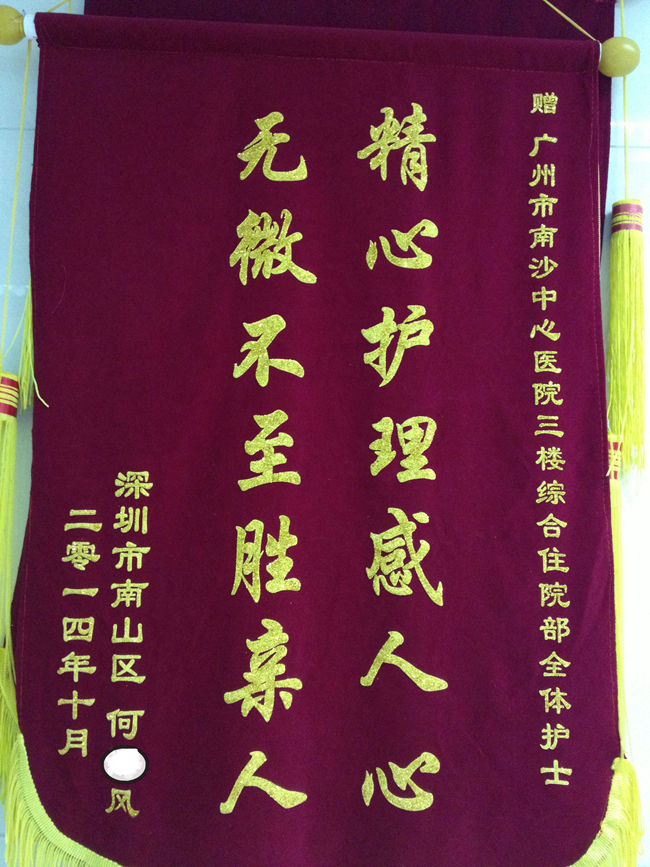 赠 广州市南沙中心医院三楼综合住院部全体护士
精心护理感人心
无微不至胜亲人
深圳市南山区 何风
二零一四年十月